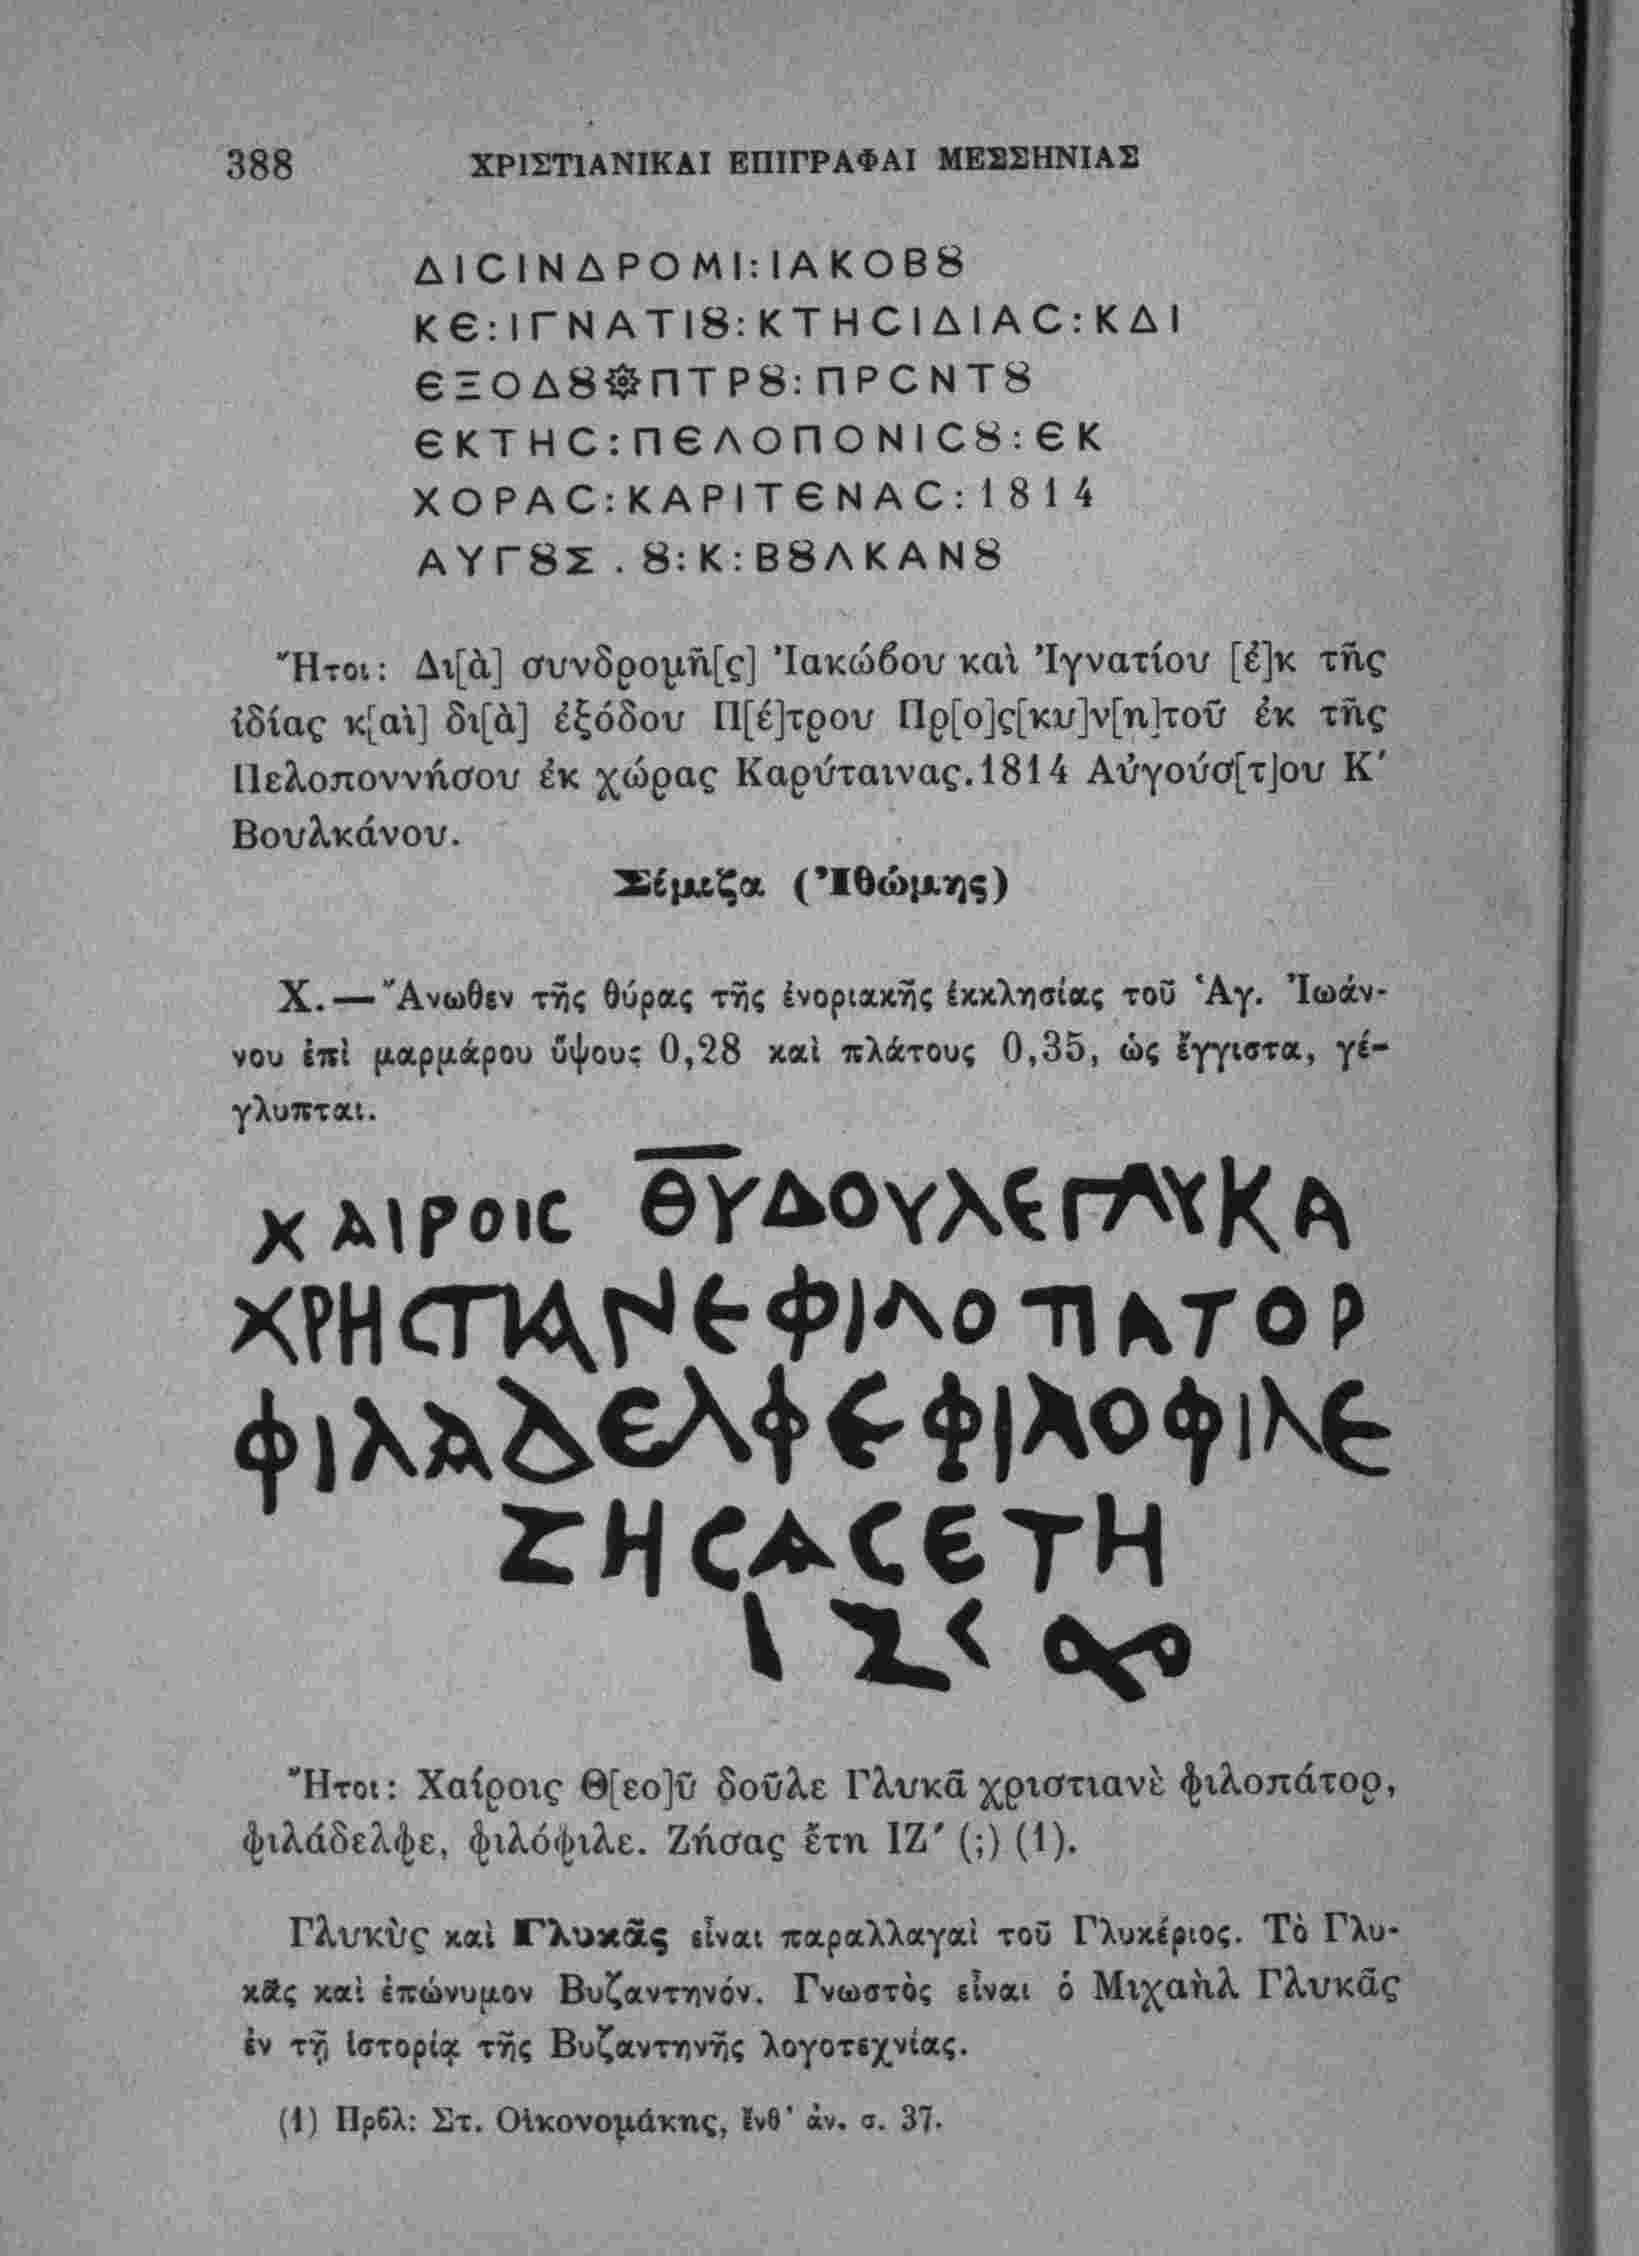 388 ΧΡΙΣΤΙΑΝΙΚΑΙ ΕΠΙΓΡΑΦΑΙ ΜΕΣΣΗΝΙΑΣ
ΔΙCΙΝΔΡΟΜΙ:ΙΑΚΟΒȢ
ΚЄ:ΙΓΝΑΤΙȢ:ΚΤΗCΙΔΙΑC:ΚΔΙ
ЄΞΟΔȢ۞ΠΤΡȢ:ΠΡCΝΤȢ
ЄΚΤΗC:ΠЄΛΟΠΟΝΙCȢ:ЄΚ
ΧΟΡΑC:ΚΑΡΙΤЄΝΑC:1814
ΑΥΓȢΣ.Ȣ:Κ:ΒȢΛΚΑΝȢ
Ἤτοι: Δι[ὰ] συνδρομῆ[ς] Ἰακώβου καὶ Ἰγνατίου [ἐ]κ τῆς
ἰδίας κ[αὶ] δι[ὰ] ἐξόδου Π[έ]τρου Πρ[ο]ς[κυ]ν[η]τοῦ ἐκ τῆς
Πελοποννήσου ἐκ χώρας Καρύταινας.1814 Αὐγούσ[τ]ου Κʹ
Βουλκάνου.
Σίμιζα (Ἰθώμης)
Χ.—Ἄνωθεν τῆς θύρας τῆς ἐνοριακῆς ἐκκλησίας τοῦ Ἁγ. Ἰωάν-
νου ἐπὶ μαρμάρου ὕψους 0,28 καὶ πλάτους 0,35, ὡς ἔγγιστα, γέ-
γλυπται.
ΧΑΙΡΟΙC Θ̅Υ̅ΔΟΥΛЄΓΛΥΚΑ
ΧΡΗCΤΙΑΝЄΦΙΛΟΠΑΤΟΡ
ΦΙΛΑΔЄΛΦЄΦΙΛΟΦΙΛЄ
ΖΗCΑCЄΤΗ
ΙΖ<
Ἤτοι: Χαίροις Θ[εο]ῦ δοῦλε Γλυκᾶ χριστιανὲ φιλοπάτορ,
φιλάδελφε, φιλόφιλε. Ζήσας ἔτη ΙΖʹ (;) (1).
Γλυκὺς καὶ Γλυκᾶς εἶναι παραλλαγαὶ τοῦ Γλυκέριος. Τὸ Γλυ-
κᾶς καὶ ἐπώνυμον Βυζαντηνόν. Γνωστὸς εἶναι ὁ Μιχαὴλ Γλυκᾶς
ἐν τῇ ἱστορίᾳ τῆς Βυζαντηνῆς λογοτεχνίας.
(1) Πρβλ: Στ. Οἰκονομάκης, ἔνθ' ἀν. σ. 37.